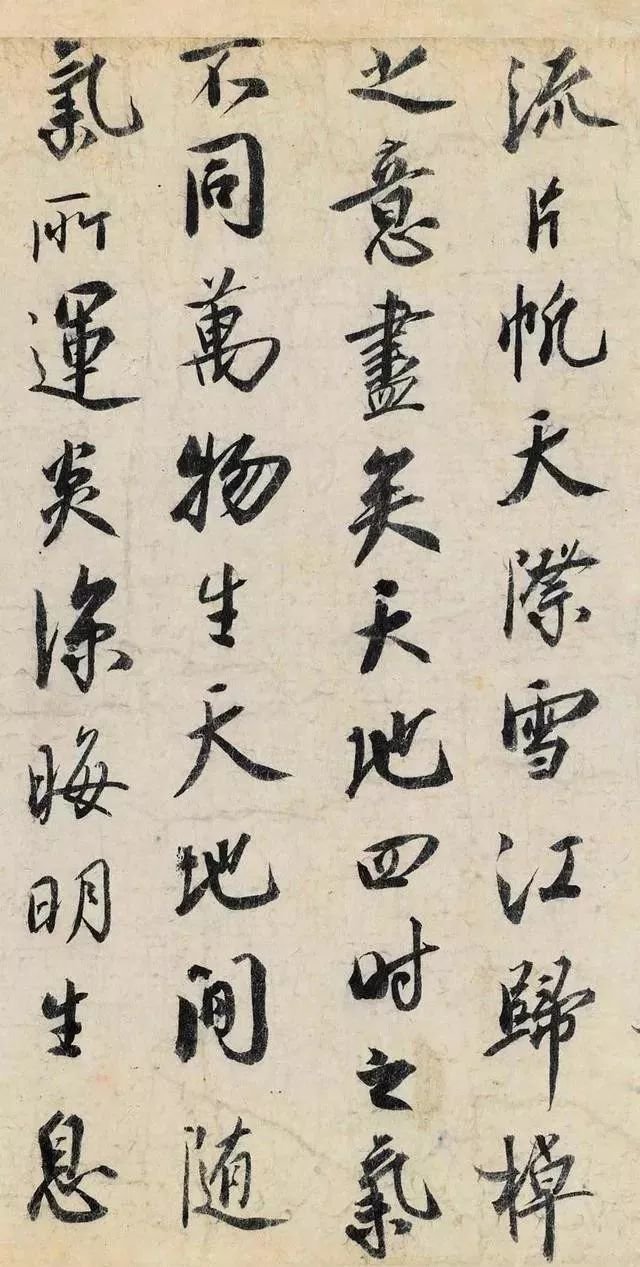 流片帆天際雪江歸棹
之意盡矣天地四時之氣
不同萬物生天地間隨
氣所運炎涼晦明生息